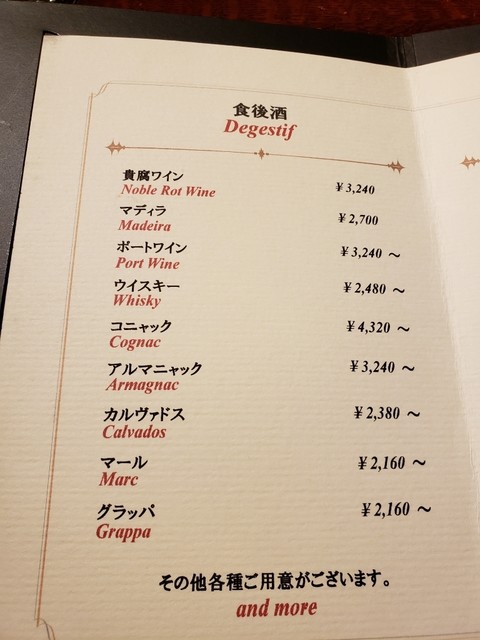 食後酒
Degestif
貴腐ワイン
Noble Rot Wine
¥3,240
マディラ
Madeira
¥2,700
ポートワイン
Port Wine
¥3,240 ～
ウイスキー
Whisky
¥2,480 ～
コニャック
Cognac
¥4,320 ～
アルマニャック
Armagnac
¥3,240 ～
カルヴァドス
Calvados
¥2,380 ～
マール
Marc
¥2,160 ～
グラッパ
Grappa
¥2,160 ～
その他各種ご用意がございます。
and more